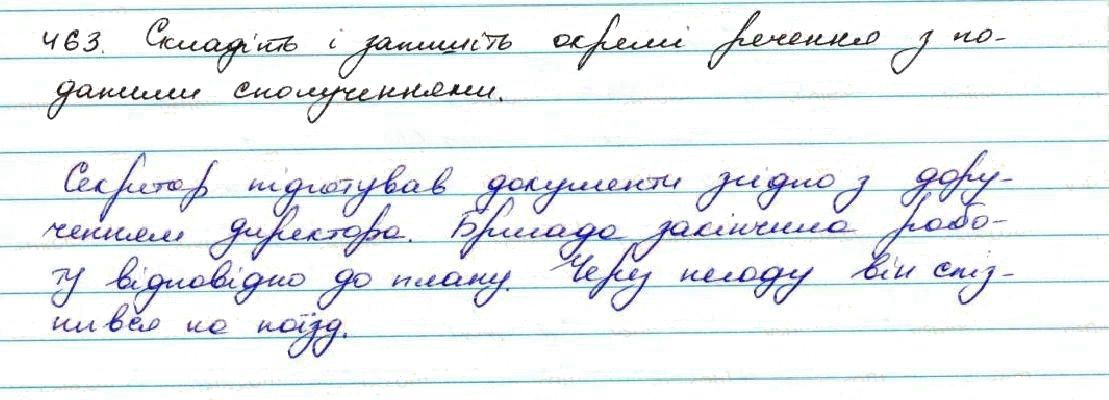 463. Складіть і запишіть окремі речення з по-
даними сполученнями.
Секретар підготував документи згідно з дору-
ченням директора. Бригада закінчила робо-
ту відповідно до плану. Через негоду він спіз-
нився на поїзд.